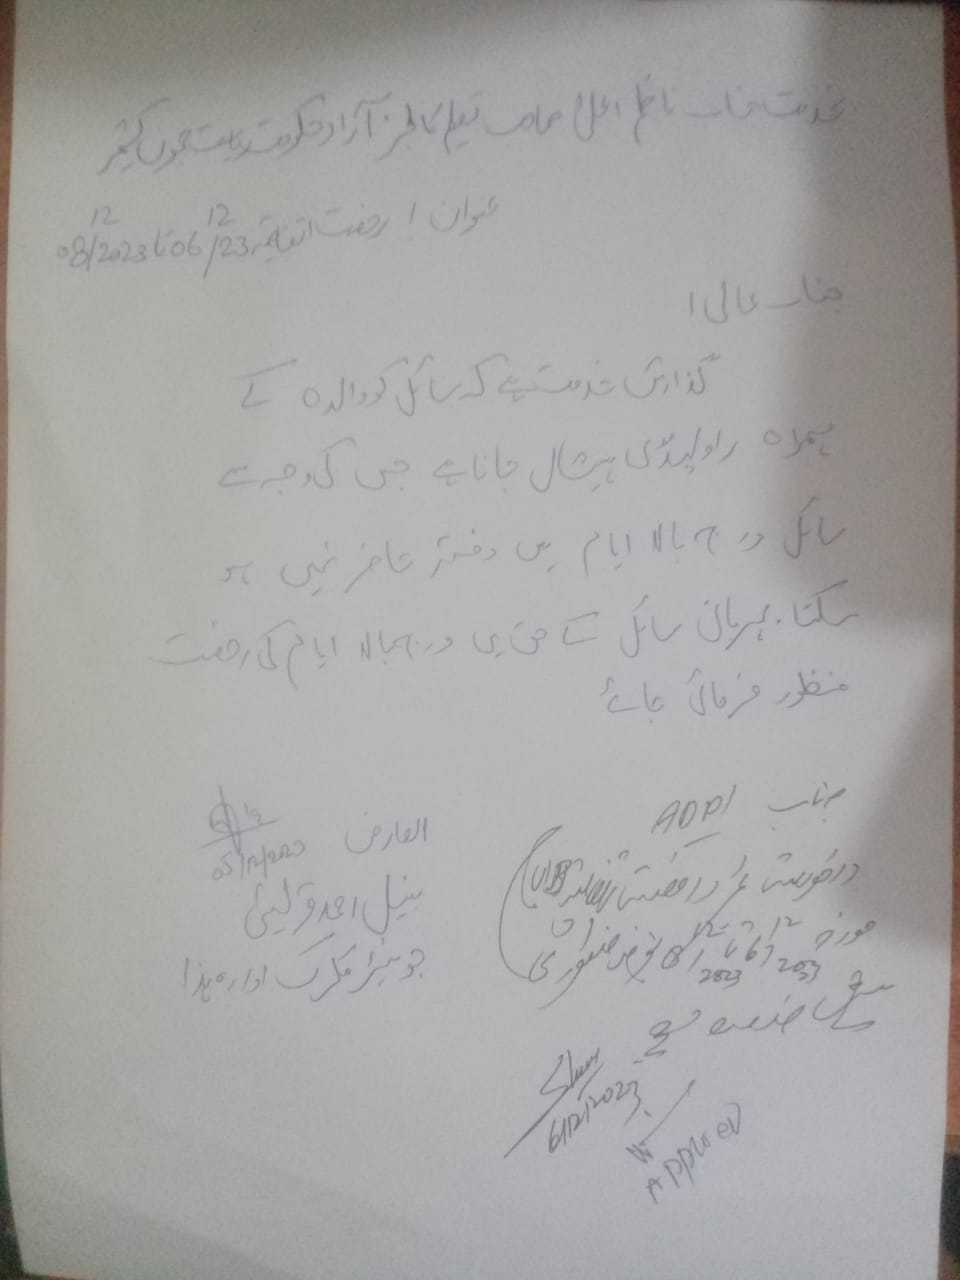 بخدمت جناب ناظم اعلیٰ صاحب تعلیم کالجز آزاد حکومت ریاست جموں کشمیر
عنوان! رخصت اتفاقیہ 06/12/23 تا 08/12/2023
جناب عالی!
گذارش خدمت ہے کہ سائل کو والدہ کے
ہمراہ راولپنڈی ہسپتال جانا ہے جس کی وجہ سے
سائل درجہ بالا ایام میں دفتر حاضر نہیں ہو
سکتا۔ مہربانی سائل کے حق میں درجہ بالا ایام کی رخصت
منظور فرمائی جائے
العارض
05/12/2023
احمد قریشی
جونیئر کلرک ادارہ ہذا
جناب ADPI
درخواست برائے رخصت اتفاقیہ
مورخہ 6/12/2023 تا 8/12/2023 بغرض منظوری
پیش خدمت ہے
6/12/2023
Approved